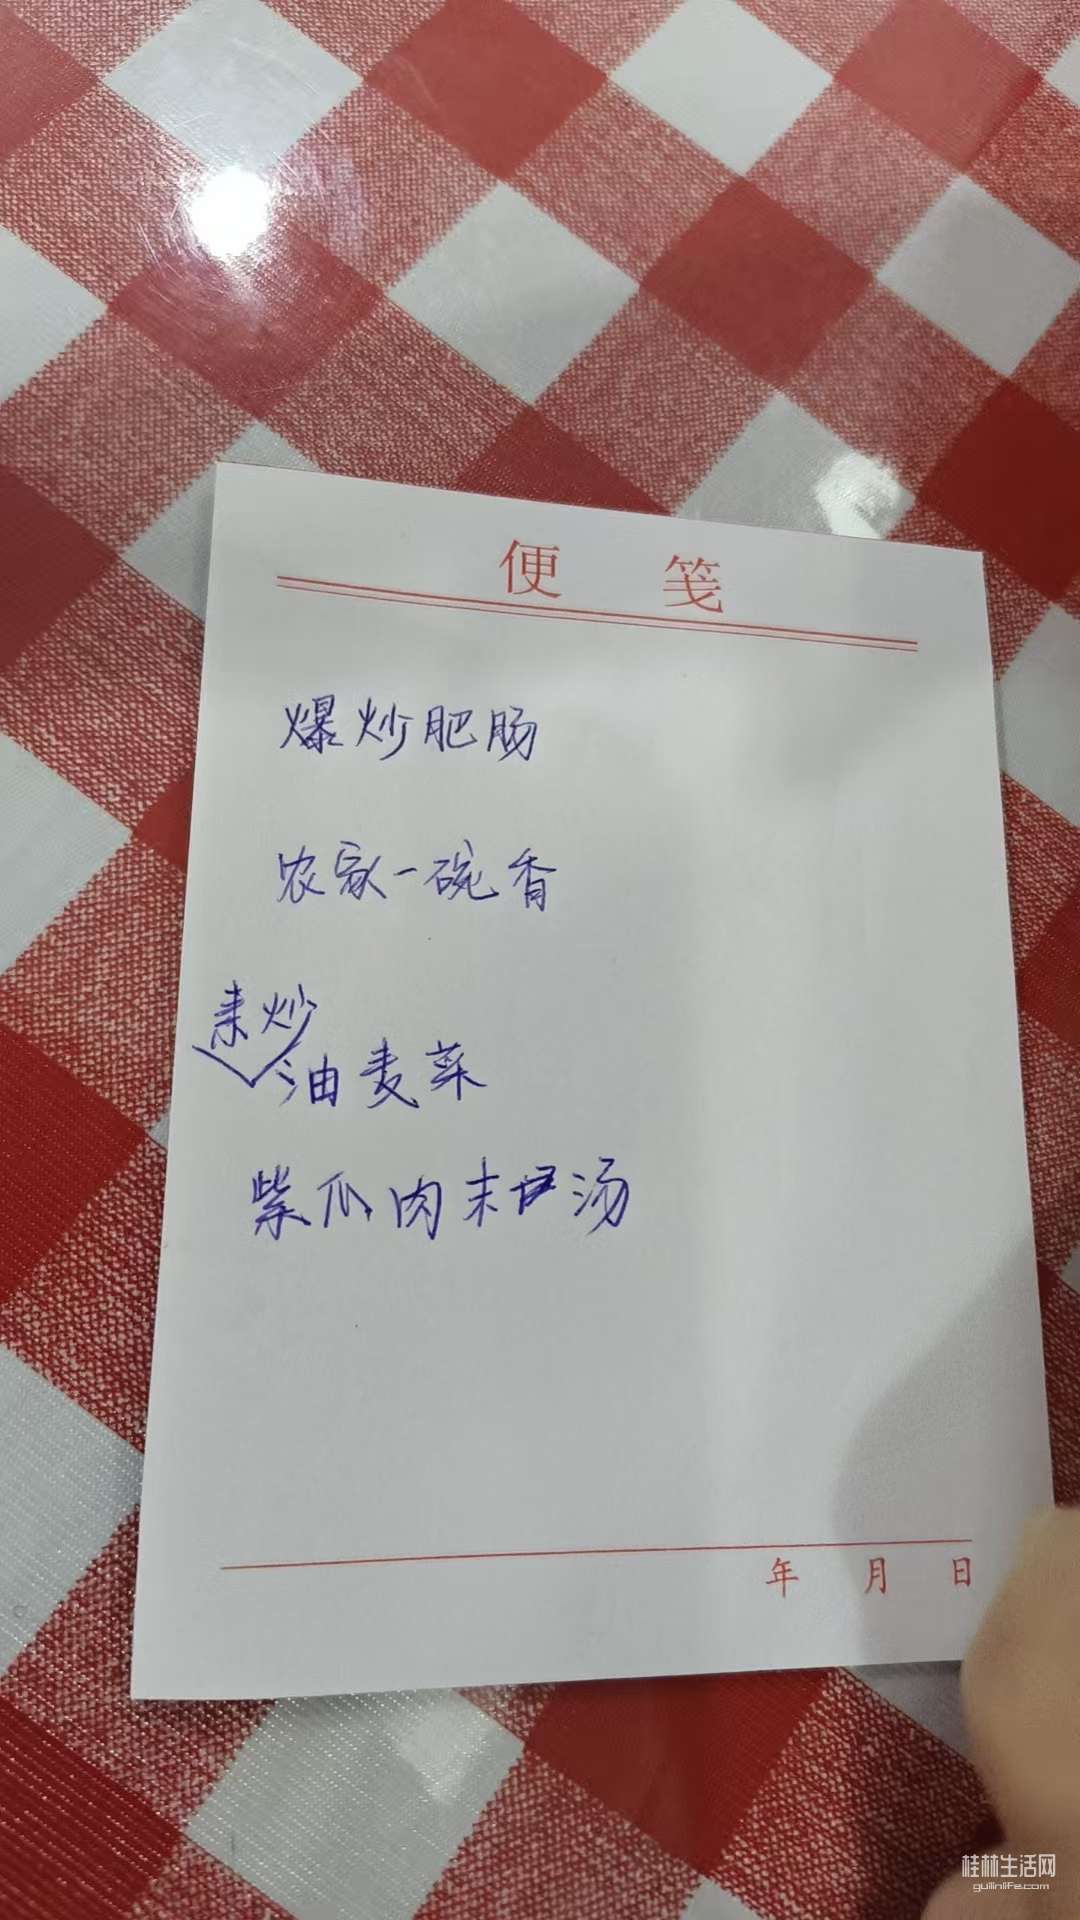 便笺
爆炒肥肠
农家一碗香
素炒
油麦菜
紫瓜肉末汤
年 月 日
桂林生活网
guilinlife.com